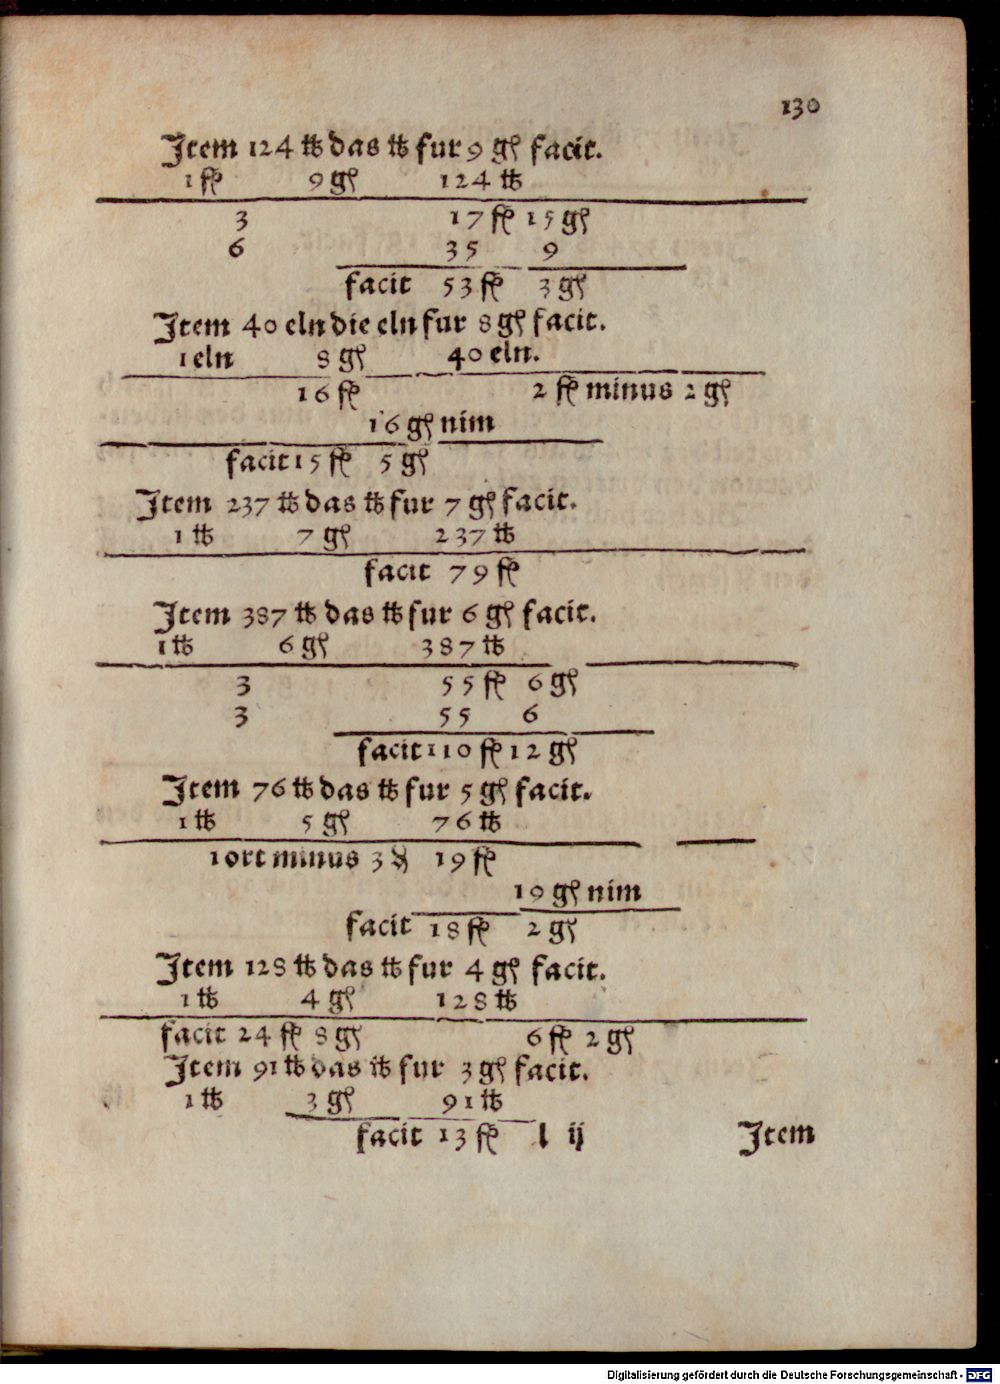 130
Item 124 ℔ das ℔ fur 9 gl facit.
1 fl 9 gl 124 ℔
3 17 fl 15 gl
6 35 9
facit 53 fl 3 gl
Item 40 eln die eln fur 8 gl facit.
1 eln 8 gl 40 eln.
16 fl 2 fl minus 2 gl
16 gl nim
facit 15 fl 5 gl
Item 237 ℔ das ℔ fur 7 gl facit.
1 ℔ 7 gl 237 ℔
facit 79 fl
Item 387 ℔ das ℔ fur 6 gl facit.
1 ℔ 6 gl 387 ℔
3 55 fl 6 gl
3 55 6
facit 110 fl 12 gl
Item 76 ℔ das ℔ fur 5 gl facit.
1 ℔ 5 gl 76 ℔
1 ort minus 3 ₰ 19 fl
19 gl nim
facit 18 fl 2 gl
Item 128 ℔ das ℔ fur 4 gl facit.
1 ℔ 4 gl 128 ℔
facit 24 fl 8 gl 6 fl 2 gl
Item 91 ℔ das ℔ fur 3 gl facit.
1 ℔ 3 gl 91 ℔
facit 13 fl l ij Item
Digitalisierung gefördert durch die Deutsche Forschungsgemeinschaft - DFG